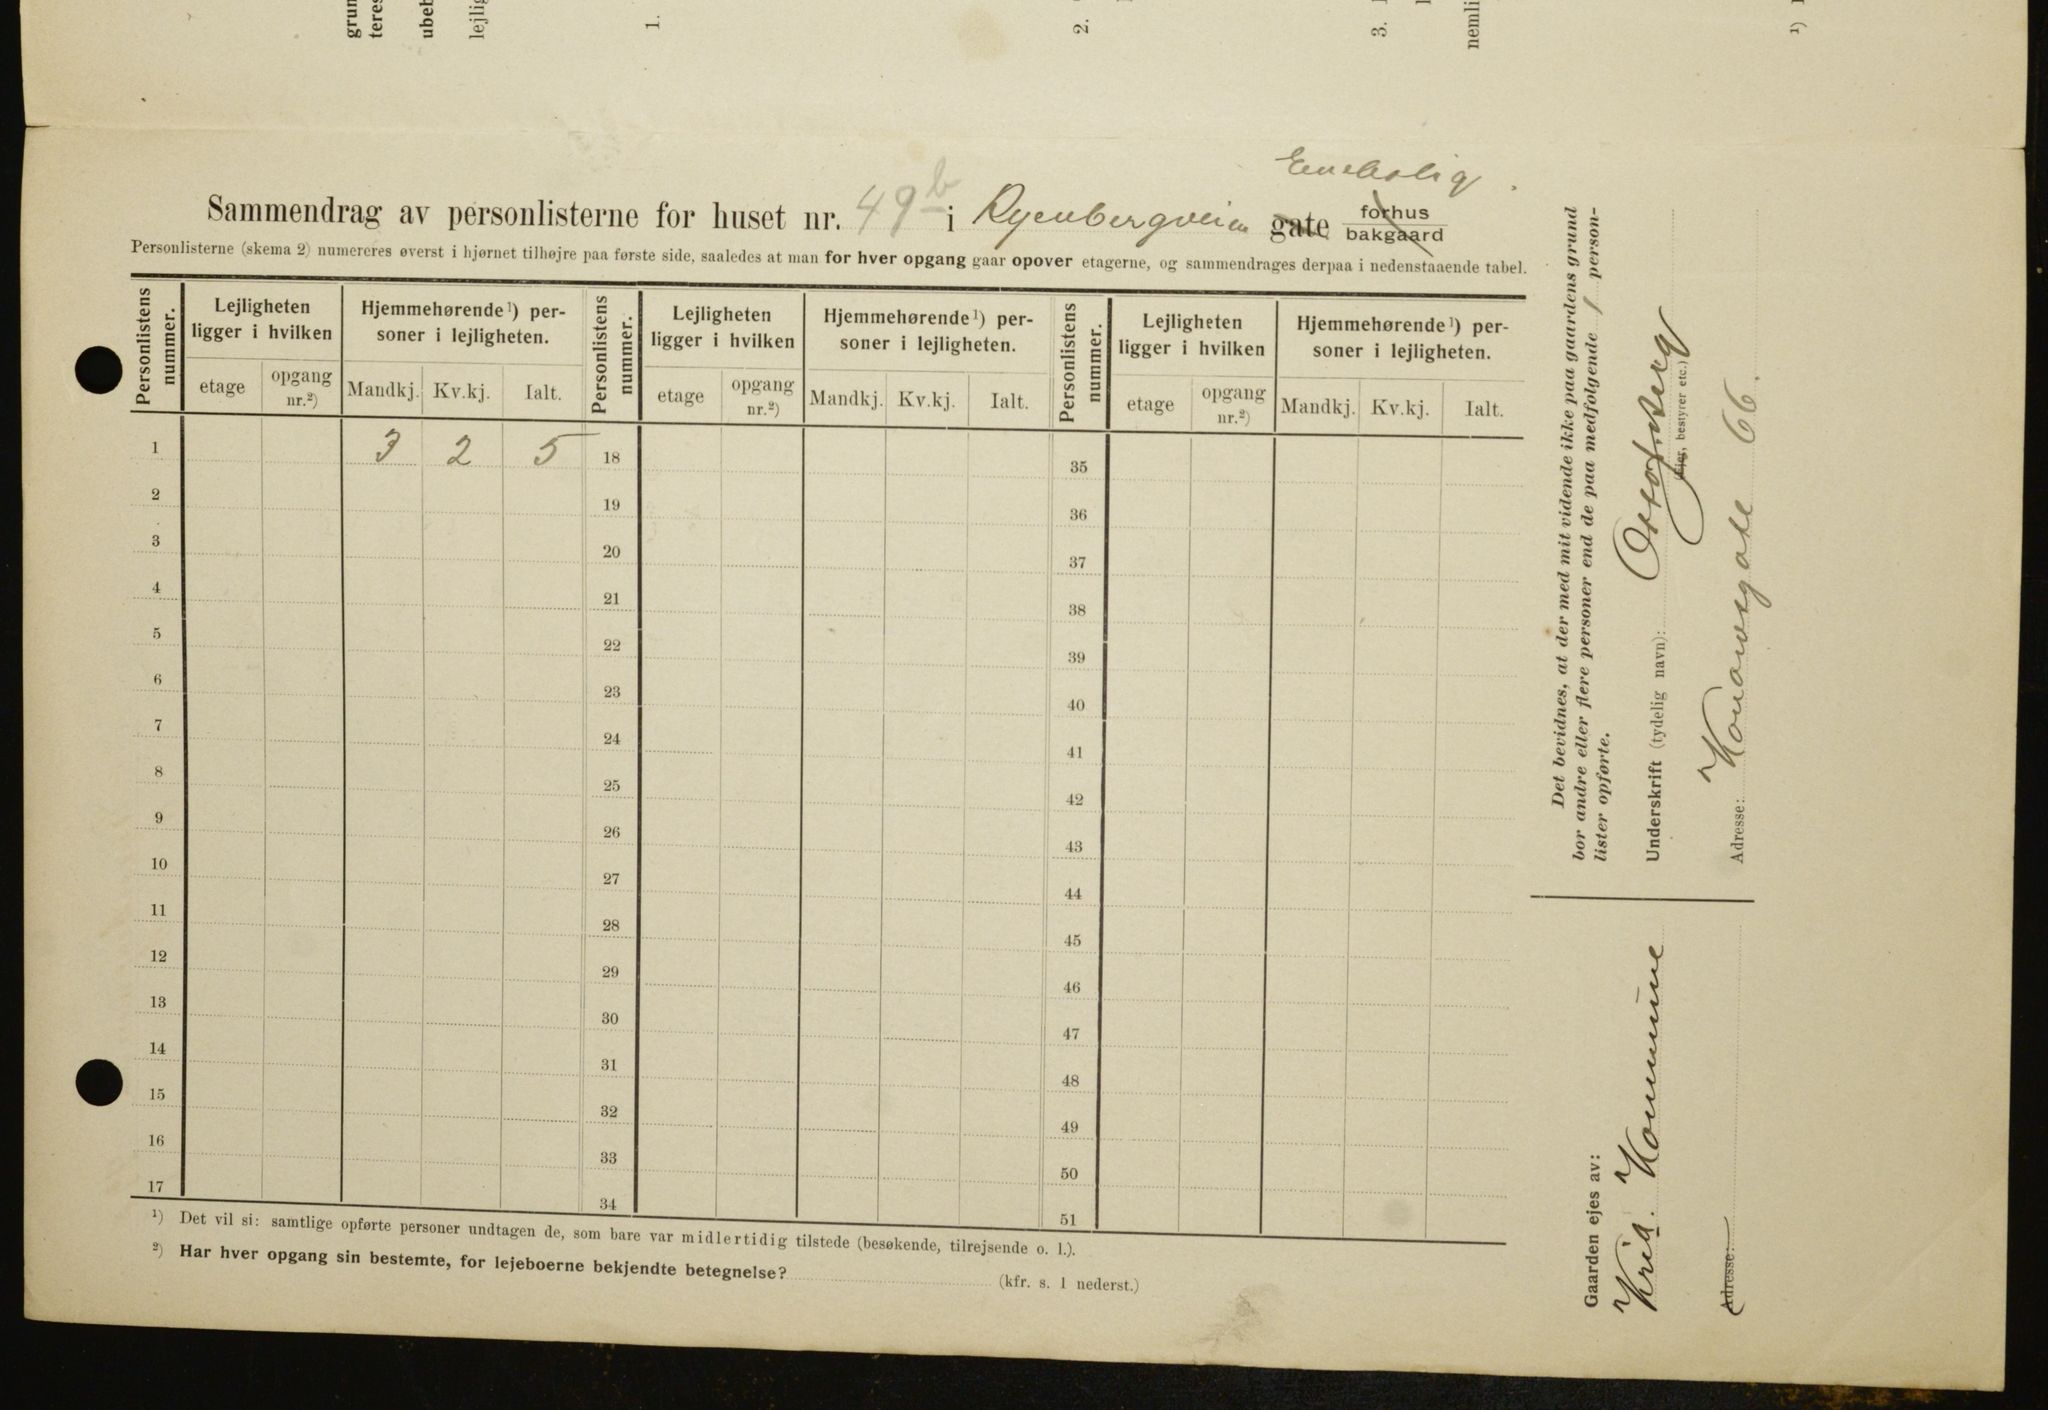 grun
teres
ubeb
lejlig
1.
2.
3.
nemli
1)
Enebolig.
Sammendrag av personlisterne for huset nr. 49b i Ryenbergveien gate forhus
bakgaard
Personlisterne (skema 2) numereres øverst i hjørnet tilhøjre paa første side, saaledes at man for hver opgang gaar opover etagerne, og sammendrages derpaa i nedenstaaende tabel.
Personlistens nummer. Lejligheten ligger i hvilken Hjemmehørende 1) personer i lejligheten. Personlistens nummer. Lejligheten ligger i hvilken Hjemmehørende 1) personer i lejligheten. Personlistens nummer. Lejligheten ligger i hvilken Hjemmehørende 1) personer i lejligheten.
etage opgang nr.2) Mandkj. Kv.kj. Ialt. etage opgang nr.2) Mandkj. Kv.kj. Ialt. etage opgang nr.2) Mandkj. Kv.kj. Ialt.
1 3 2 5 18 35
2 19 36
3 20 37
4 21 38
5 22 39
6 23 40
7 24 41
8 25 42
9 26 43
10 27 44
11 28 45
12 29 46
13 30 47
14 31 48
15 32 49
16 33 50
17 34 51
1) Det vil si: samtlige opførte personer undtagen de, som bare var midlertidig tilstede (besøkende, tilrejsende o. l.).
2) Har hver opgang sin bestemte, for lejeboerne bekjendte betegnelse? (kfr. s. 1 nederst.)
Det bevidnes, at der med mit vidende ikke paa gaardens grund
bor andre eller flere personer end de paa medfølgende 1 person-
lister opførte.
Underskrift (tydelig navn):
(Ejer, bestyrer etc.)
Adresse: Konowsgate 66.
Gaarden ejes av:
Kria. Kommune
Adresse: